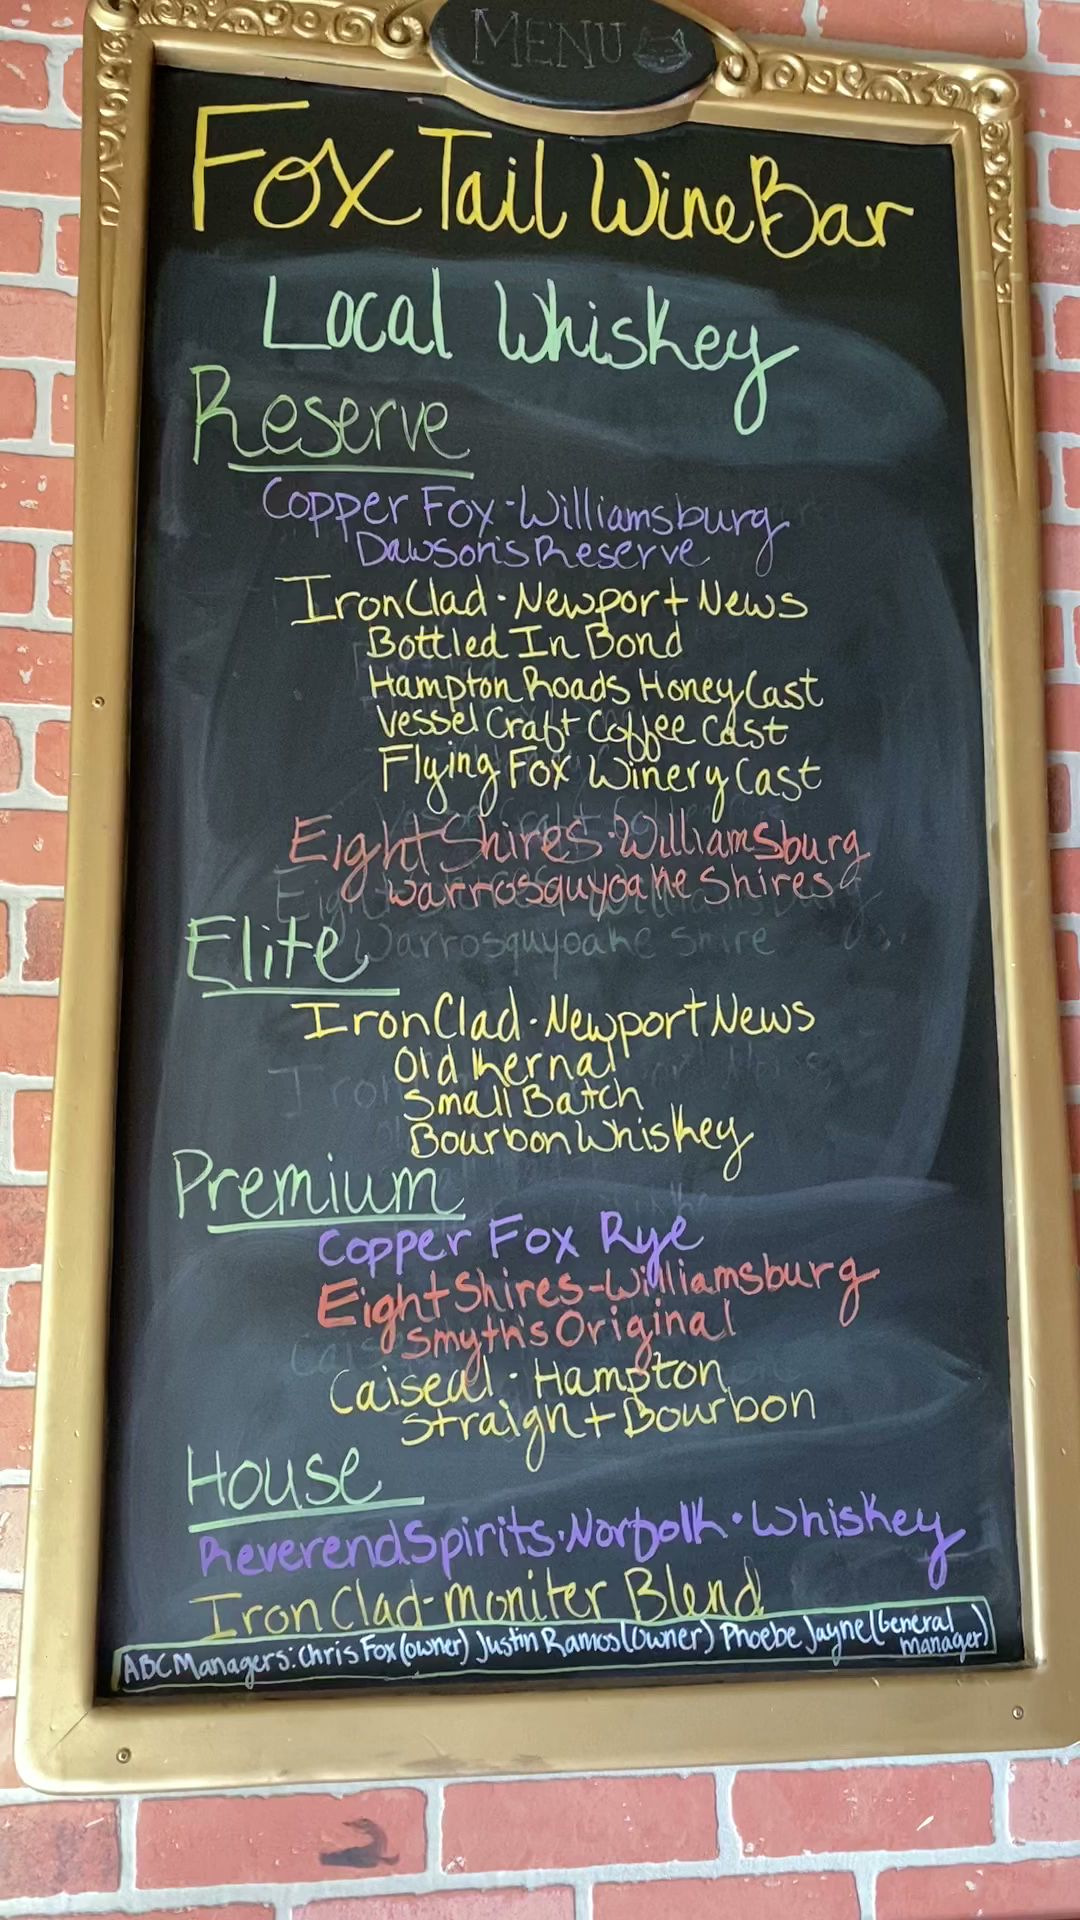 MENU
Fox Tail Wine Bar
Local Whiskey
Reserve
Copper Fox - Williamsburg
Dawson's Reserve
Iron Clad - Newport News
Bottled In Bond
Hampton Roads Honey Cast
Vessel Craft Coffee Cast
Flying Fox Winery Cast
Eight Shires - Williamsburg
Warrosquyoake Shires
Elite
Warrosquyoake Shire
Iron Clad - Newport News
Old Kernal
Small Batch
Bourbon Whiskey
Premium
Copper Fox Rye
Eight Shires - Williamsburg
Smyth's Original
Caiseal - Hampton
Straight Bourbon
House
Reverend Spirits - Norfolk - Whiskey
Iron Clad - Moniter Blend
ABC Managers: Chris Fox (owner) Justin Ramos (Owner) Phoebe Jayne (General
manager)